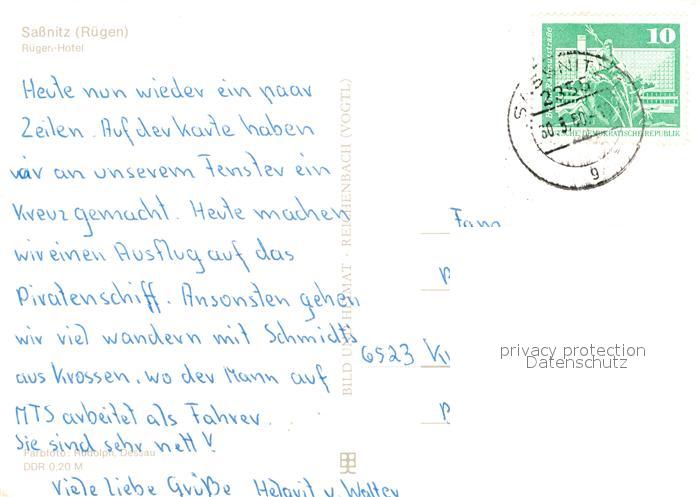 Saßnitz (Rügen)
Rügen-Hotel
Heute nun wieder ein paar
Zeilen. Auf der Karte haben
wir an unserem Fenster ein
Kreuz gemacht. Heute machen
wir einen Ausflug auf das
Piratenschiff. Ansonsten gehen
wir viel wandern mit Schmidt's
aus Krossen, wo der Mann auf
MTS arbeitet als Fahrer.
Sie sind sehr nett!
Viele liebe Grüße Helgrit u. Walter
Farbfoto: Rudolph, Dessau
DDR 0,20 M
BILD UND HEIMAT · REICHENBACH (VOGTL)
10
DEMOKRATISCHE REPUBLIK
2355
Fam
6523
privacy protection
Datenschutz